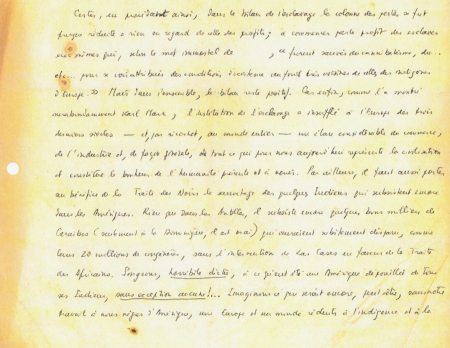 Certes, en procédant ainsi, dans le bilan de l'esclavage la colonne des pertes se fut
presque réduite à rien en regard de celle des profits ; à commencer par le profit des esclaves
eux-mêmes qui, selon le mot immortel de , "furent sauvés du cannibalisme, du...
etc... pour se voir attribuer des conditions d'existence au fond très voisines de celles des
d'Europe. » Mais dans l'ensemble, le bilan reste positif. Car enfin, comme l'a montré
Karl Marx, l'institution de l'esclavage a insufflé à l'Europe des trois
derniers siècles — et, par ricochet, au monde entier — un élan considérable du commerce,
de l'industrie et, de façon générale, de tout ce qui pour nous aujourd'hui représente la civilisation
et constitue le bonheur de l'humanité présente et à venir. Par ailleurs, il faut aussi porter
au bénéfice de la Traite des Noirs le sauvetage des quelques Indiens qui subsistent encore
dans les Amériques. Rien que dans les Antilles, il subsiste encore quelques bons milliers de
Caraïbes (seulement à la Dominique, il est vrai) qui auraient subitement disparu, comme
leurs 20 millions de congénères, sans l'intervention de Las Casas en faveur de la Traite
des Africains. Songeons, horribile dictu, à ce qu'eût été une Amérique dépouillée de tous
ses Indiens, sans exception aucune !... Imaginons ce que seraient encore, peut-être, sans notre
travail à nous nègres d'Amérique, une Europe et un monde réduits à l'indigence et à la